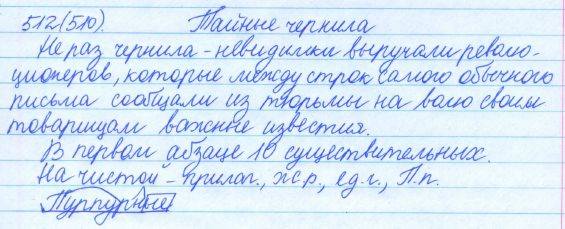 512(510). Тайные чернила
Не раз чернила - невидимки выручали револю-
ционеров, которые между строк самого обычного
письма сообщали из тюрьмы на волю своим
товарищам важные известия.
В первом абзаце 10 существительных.
На чистой - прилаг., ж.р., ед.ч., П.п.
Пурпурные